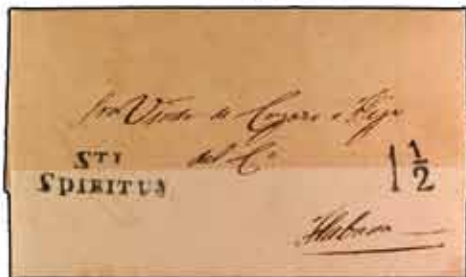 Sra Viuda de Cozar e Hijo
del Co
STI
SPIRITUS
1 1/2
Habana